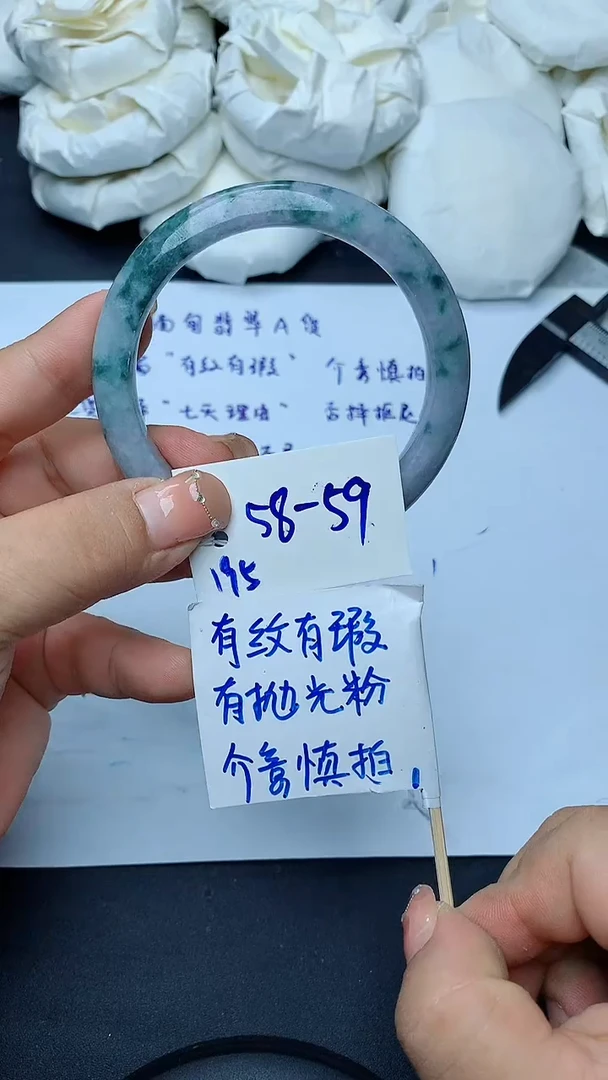 缅甸翡翠A货
"有纹有瑕" 介意慎拍
"七天理培"
58-59
195
有纹有瑕
有抛光粉
介意慎拍